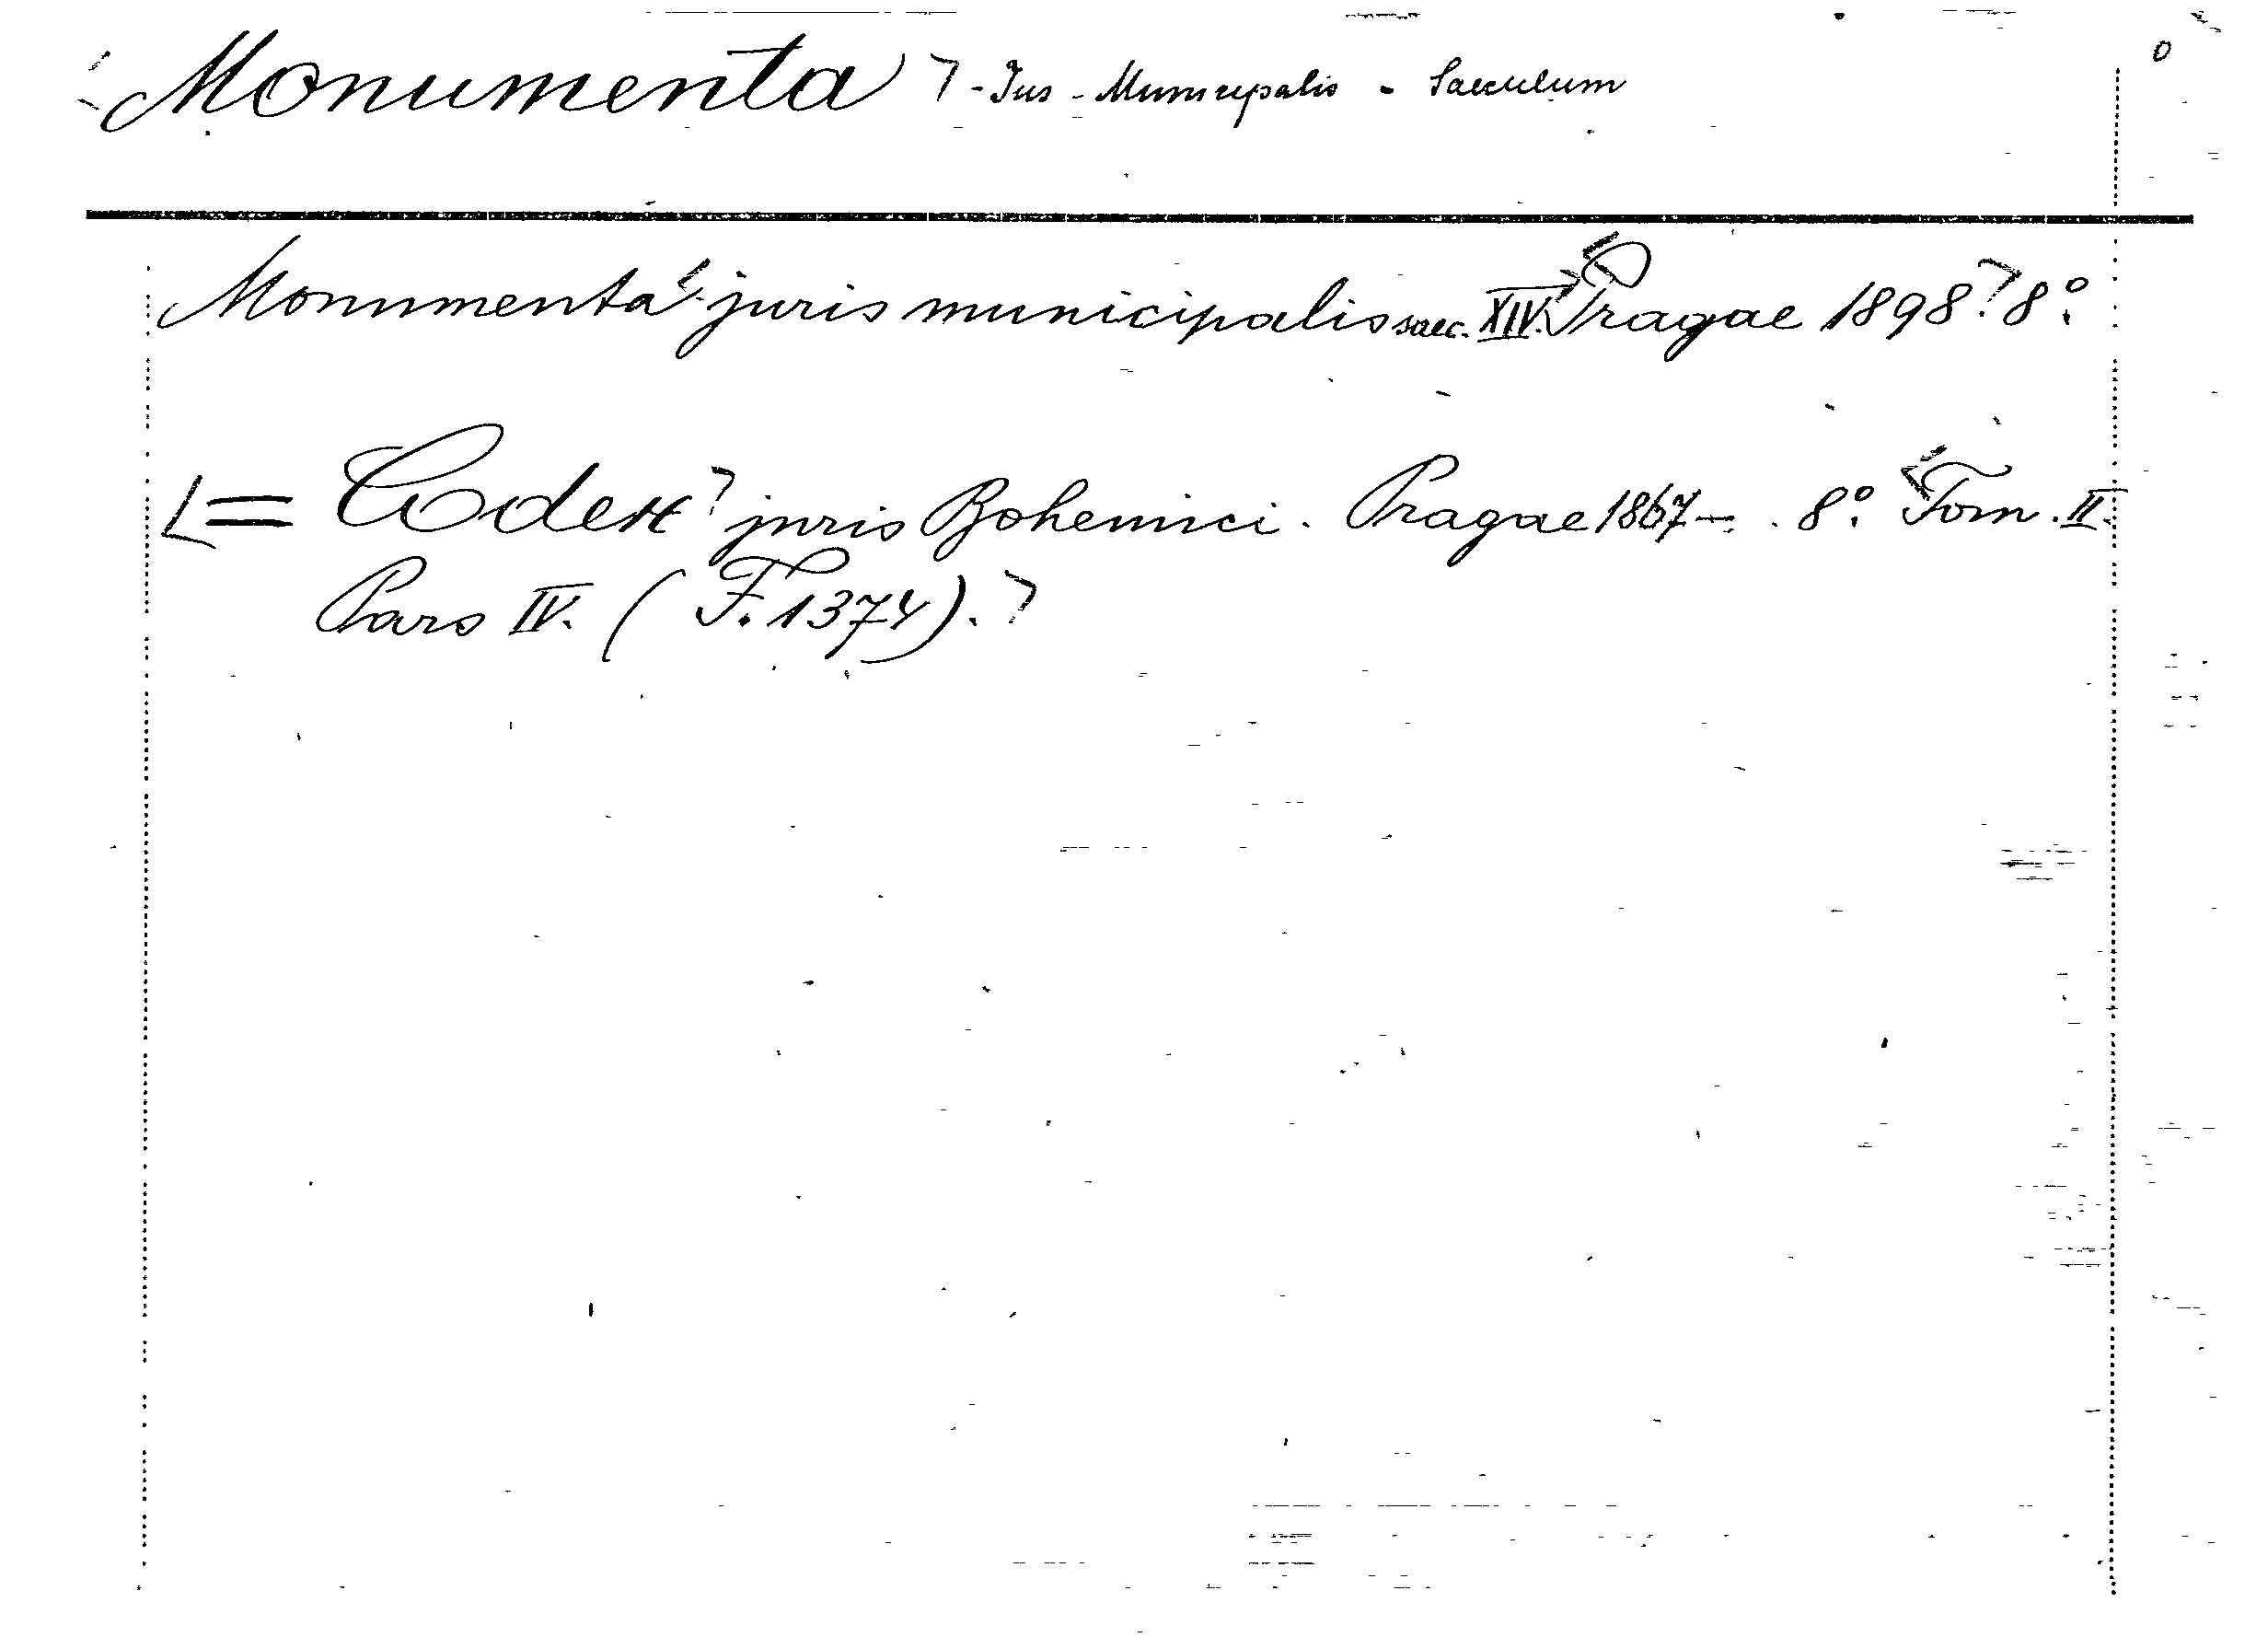 Monumenta - Jus - Municipalis - Saeculum
Monumenta juris municipalis saec. XIV. Pragae 1898. 8°.
= Codex juris Bohemici. Pragae 1867 - . 8°. Tom. II.
Pars IV. (F. 1374).